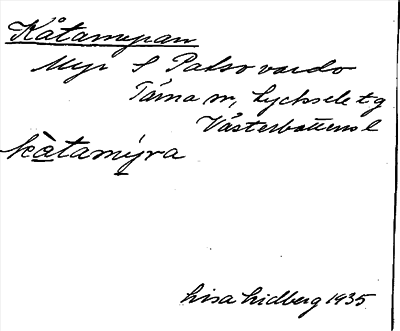 Kåtamyran
Myr S Patsovardo
Tärna sn, Lycksele tg
Västerbottens l
kå̀tamýra
Lisa Lidberg 1935